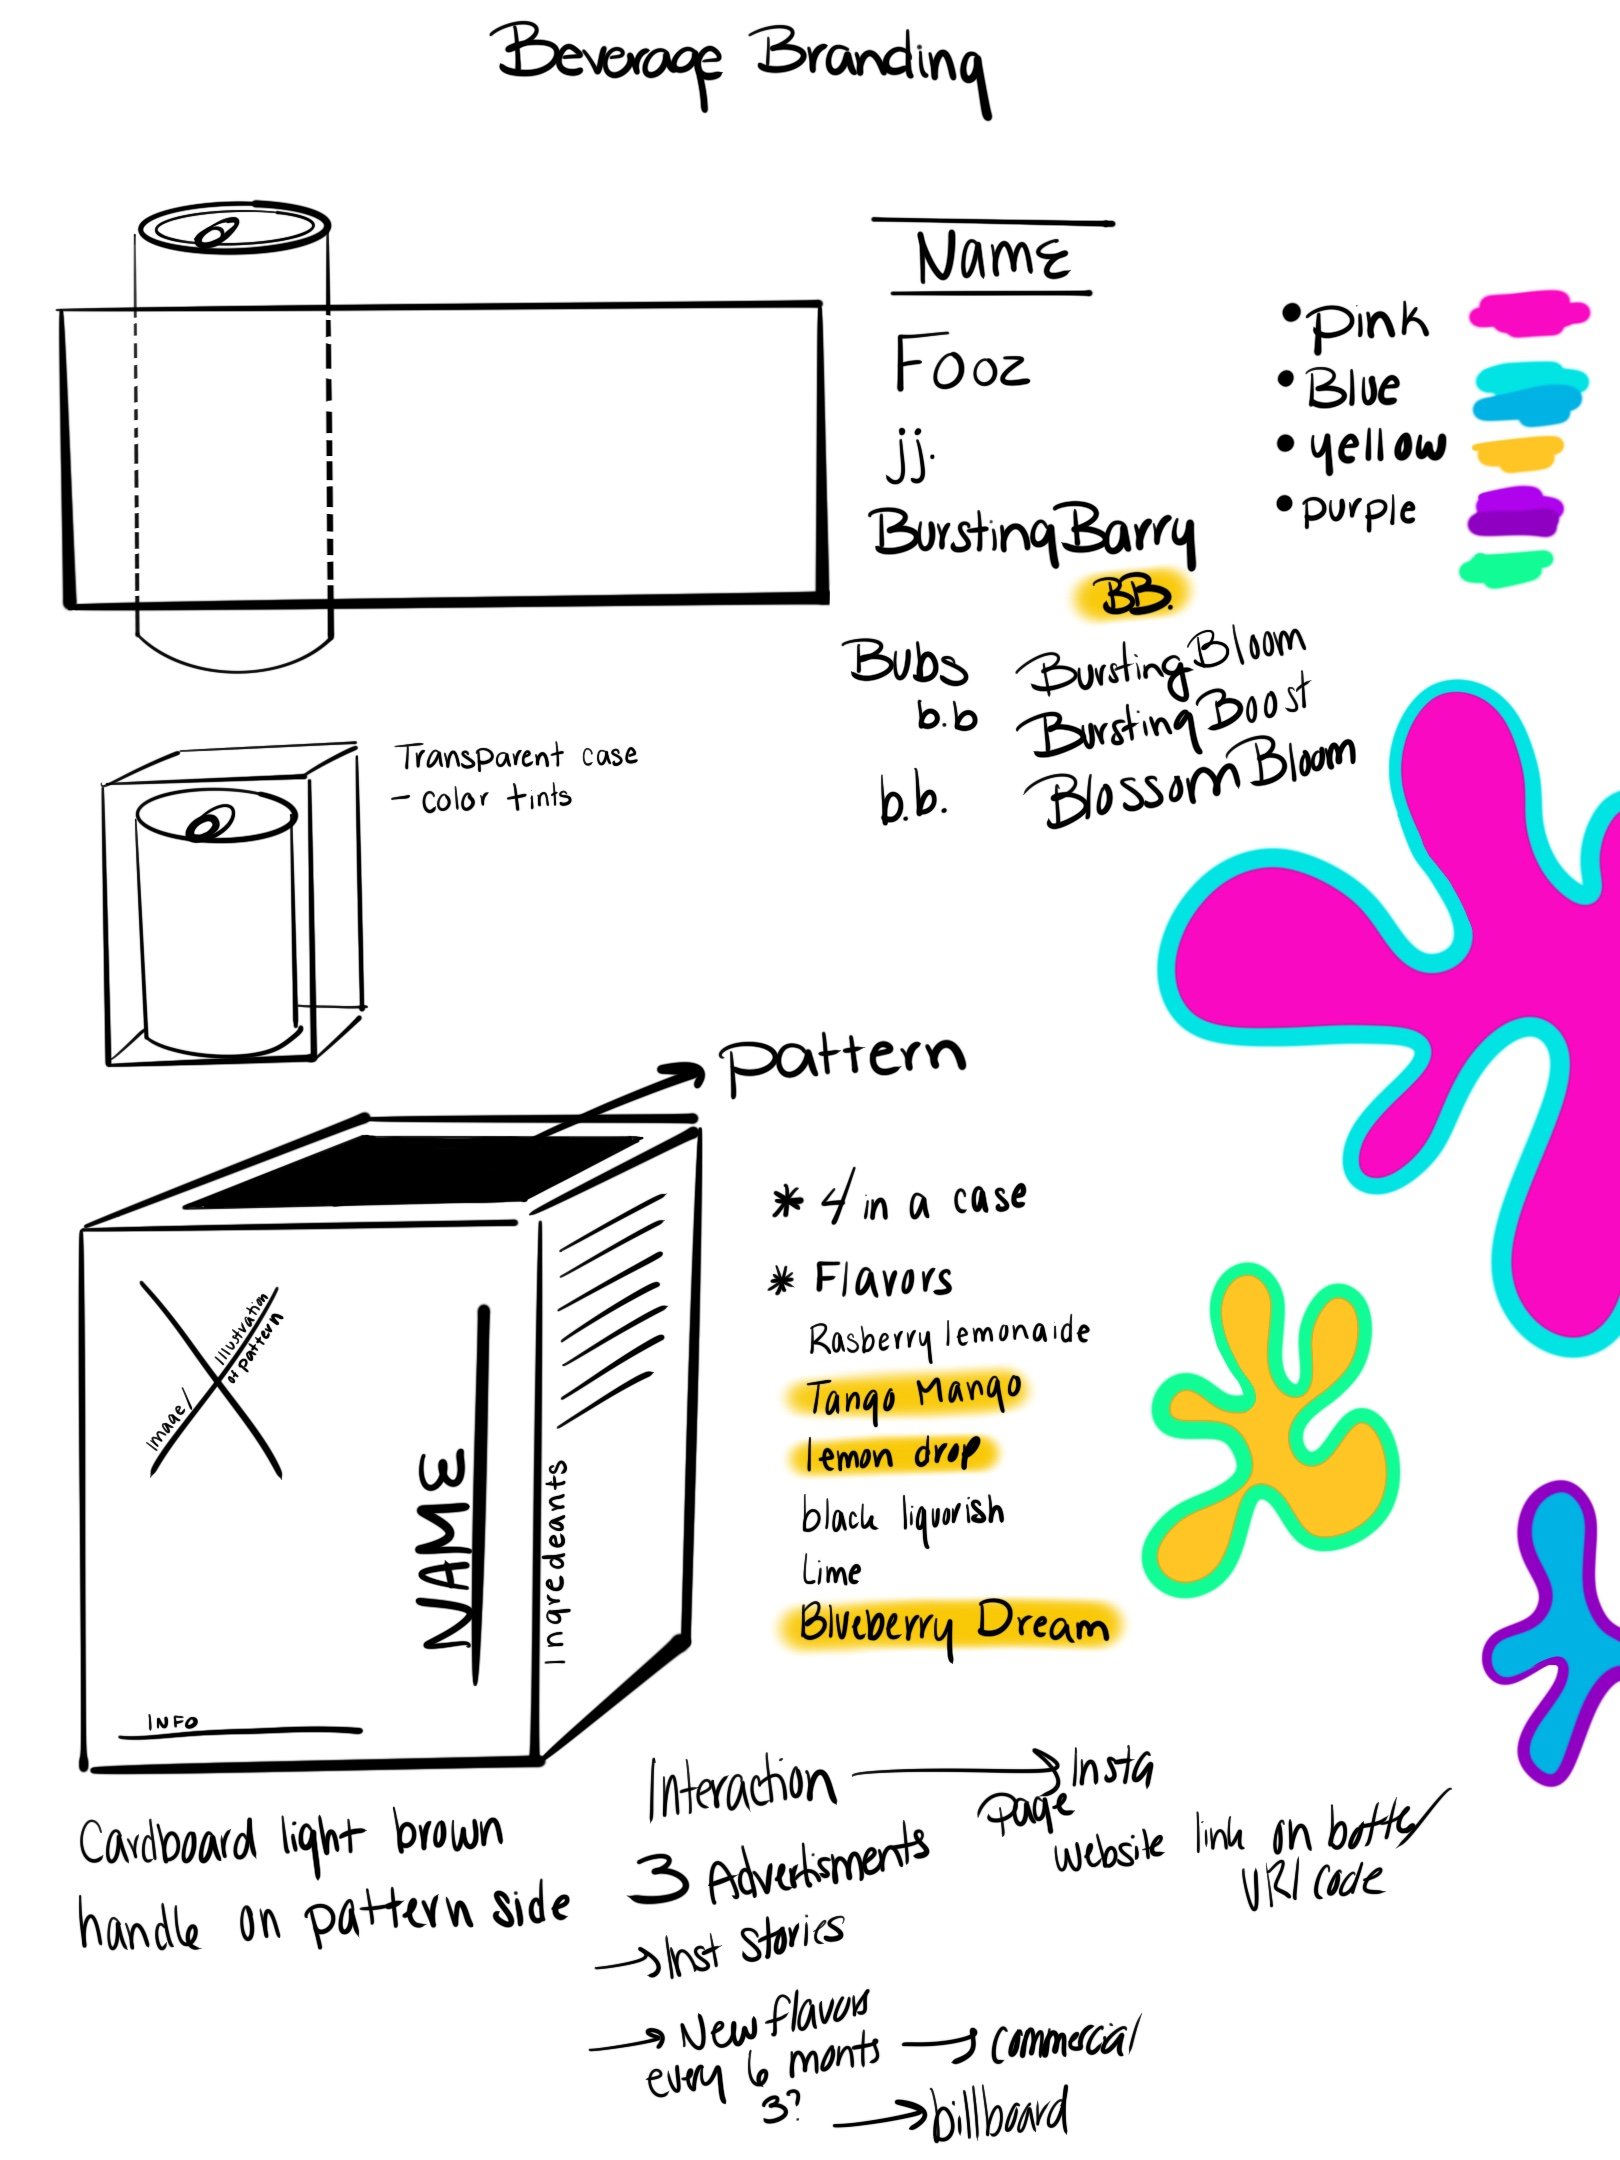 Beverage Branding
Name
Fooz
jj.
Bursting Barry
BB.
Bubs
b.b
b.b.
Bursting Bloom
Bursting Boost
Blossom Bloom
• pink
• Blue
• yellow
• purple
Transparent case
- color tints
pattern
Image/
Illustration
of pattern
NAME
Ingredeants
INFO
* 4 in a case
* Flavors
Rasberry lemonaide
Tango Mango
lemon drop
black liquorish
Lime
Blueberry Dream
Cardboard light brown
handle on pattern side
Interaction → Insta
Page
website link on bottle/
URl code
3 Advertisments
→ Inst stories
→ New flavors
every 6 monts → commercial
3?
→ billboard